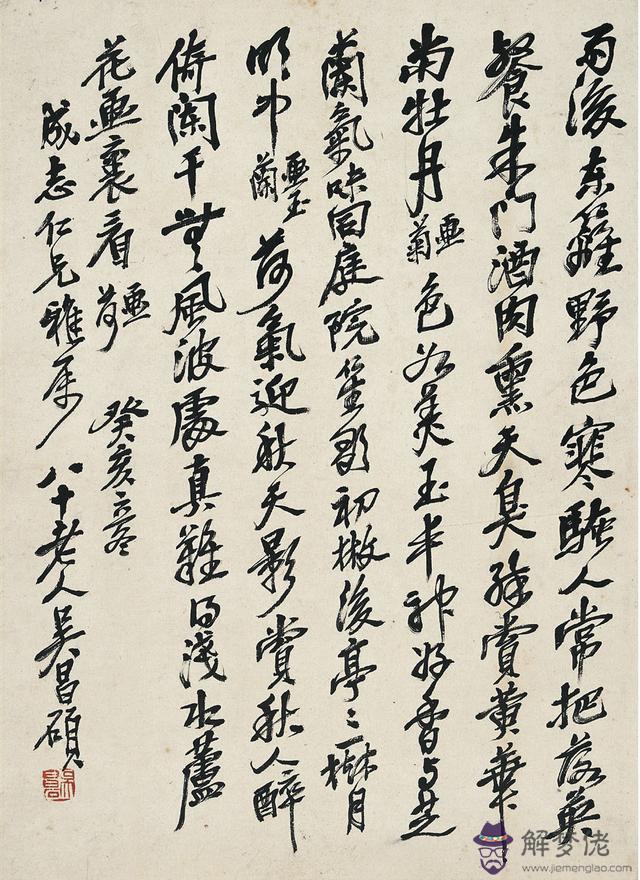 雨後東籬野色寒騷人常把落英
餐朱門酒肉熏天臭賞黃華
尚牡丹畫菊色如美玉丰神好香與芝
蘭氣味同庭院初撤後亭亭一樹月
明中畫玉蘭荷氣迎秋天影賞秋人醉
倚闌干無風波處真難得淺水蘆
花畫裏看畫荷癸亥立冬
成志仁兄雅屬八十老人吳昌碩
解梦佬
www.jiemenglao.com